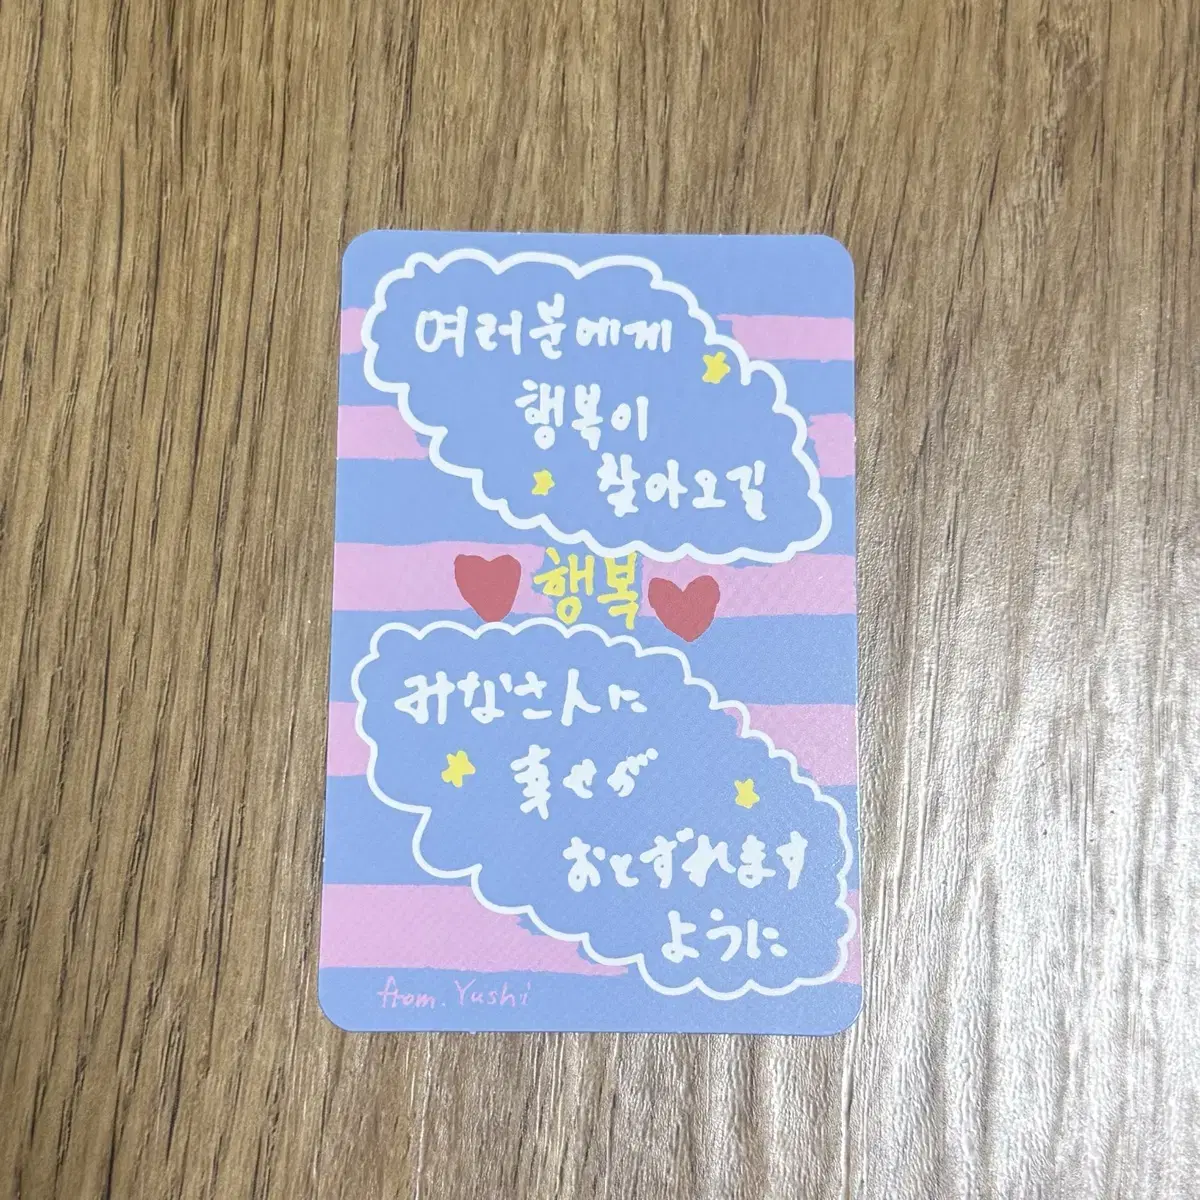 여러분에게
행복이
찾아오길
행복
みなさんに
幸せが
おとずれます
ように
from. Yushi